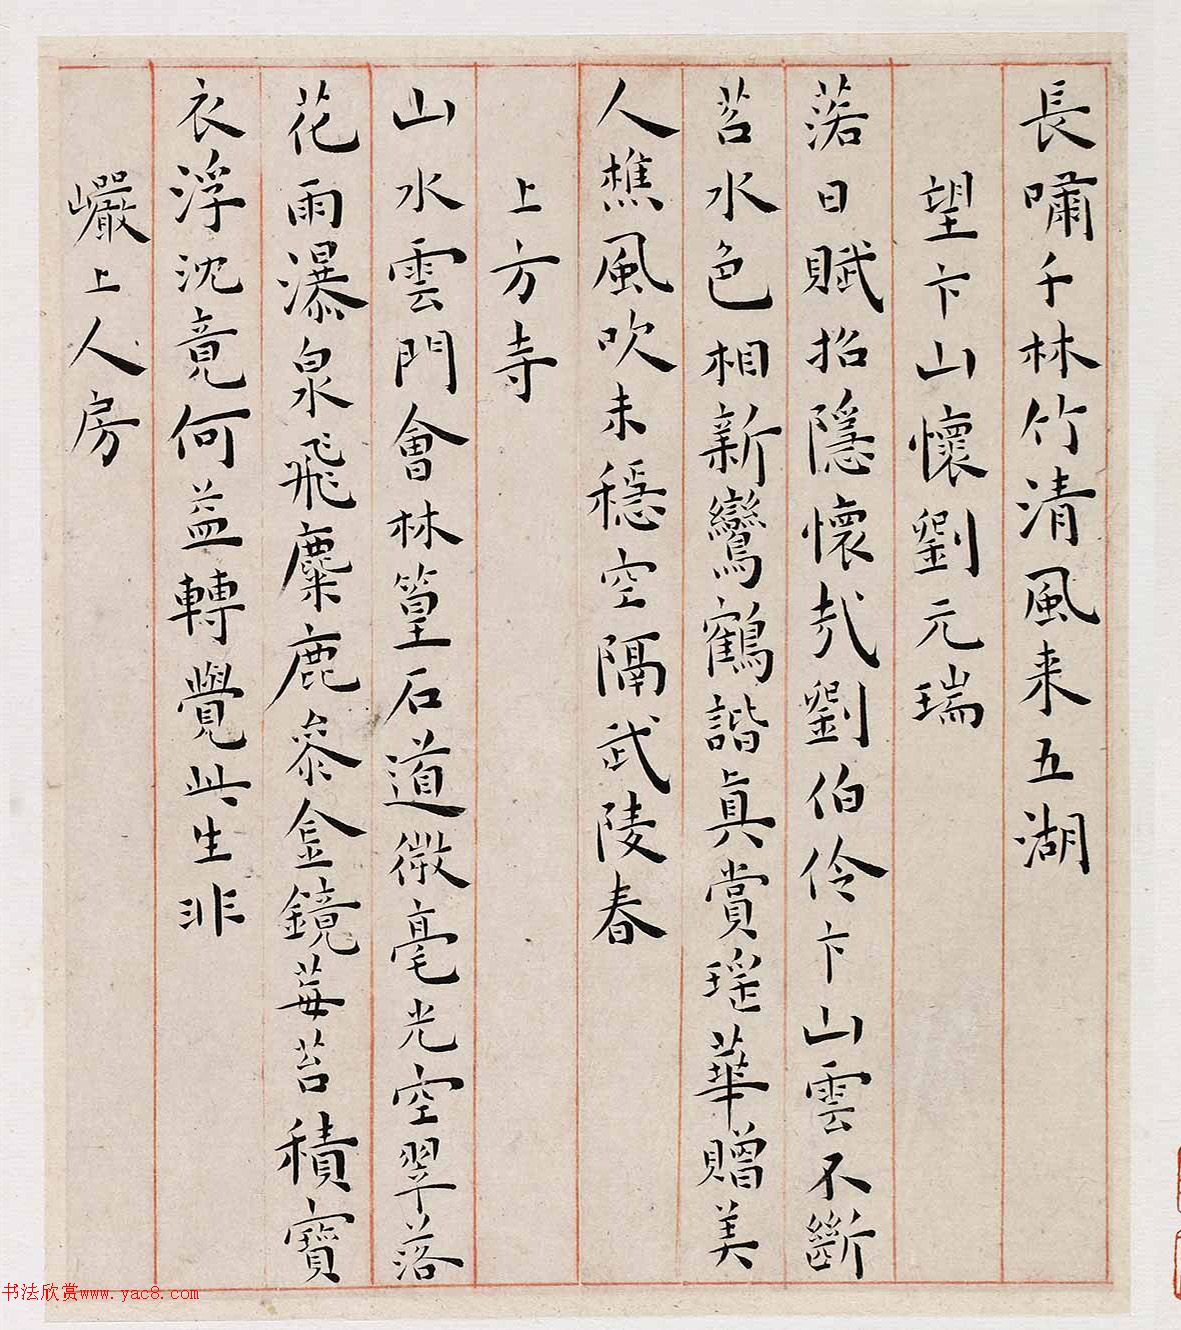 長嘯千林竹清風来五湖
望卞山懷劉元瑞
落日賦招隱懷哉劉伯伶卞山雲不斷
苕水色相新鸞鶴諧眞賞瑶華贈美
人樵風吹未穩空隔武陵春
上方寺
山水雲門會林篁石道微毫光空翠落
花雨瀑泉飛麋鹿叅金鏡莓苔積寶
衣浮沈竟何益轉覺此生非
巖上人房
书法欣赏www.yac8.com